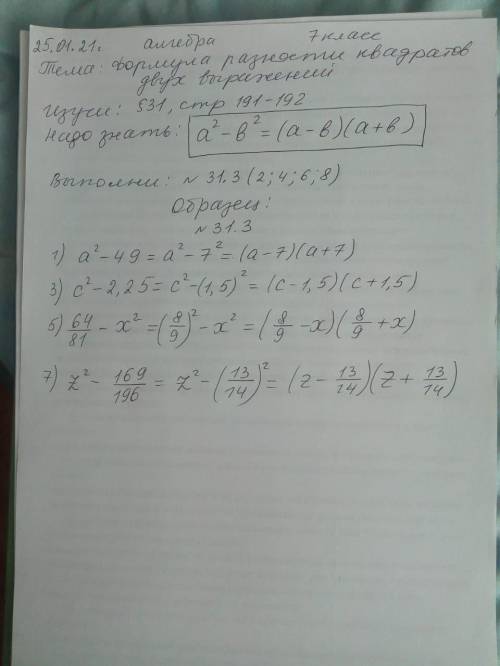 25.01.21г. алгебра 7 класс
Тема: Формула разности квадратов
двух выражений
Изучи: §31, стр 191-192
Надо знать: a² - в² = (a - в)(a + в)
Выполни: №31.3 (2; 4; 6; 8)
Образец:
№31.3
1) a² - 49 = a² - 7² = (a - 7)(a + 7)
3) c² - 2,25 = c² - (1,5)² = (c - 1,5)(c + 1,5)
5) 64/81 - x² = (8/9)² - x² = (8/9 - x)(8/9 + x)
7) z² - 169/196 = z² - (13/14)² = (z - 13/14)(z + 13/14)